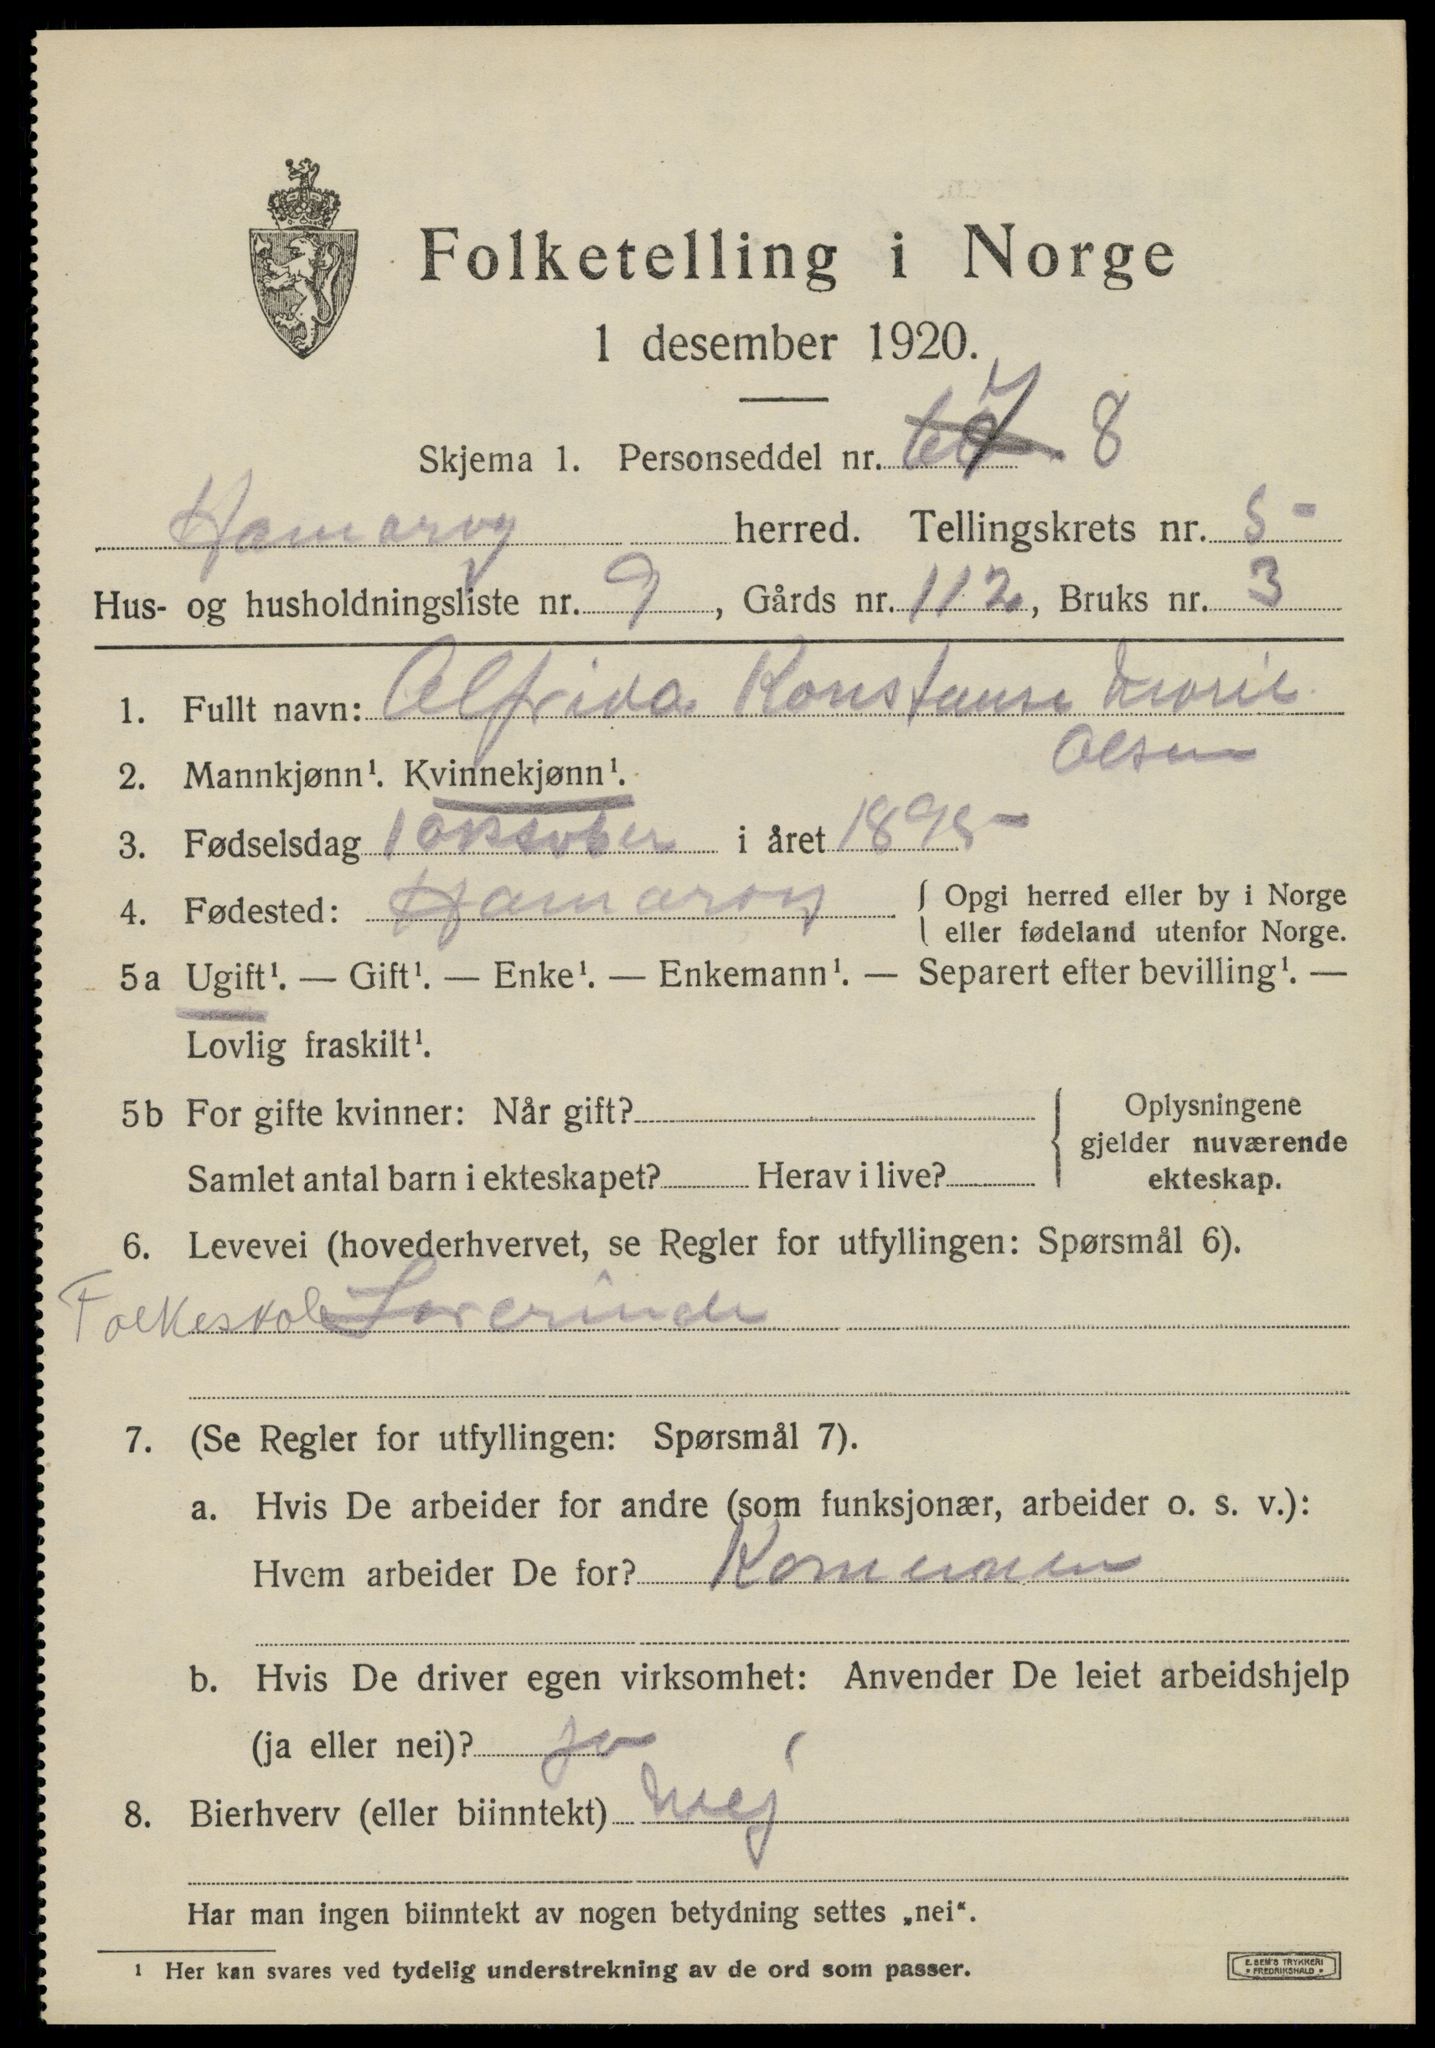 Folketelling i Norge
1 desember 1920.
Skjema 1. Personseddel nr. 8
Hamarøy herred. Tellingskrets nr. 5
Hus- og husholdningsliste nr. 9, Gårds nr. 112, Bruks nr. 3
1. Fullt navn: Alfrida Konstanse Marie
Olsen
2. Mannkjønn¹. Kvinnekjønn¹.
3. Fødselsdag 1 oktober i året 1895
4. Fødested: Hamarøy { Opgi herred eller by i Norge
eller fødeland utenfor Norge.
5a Ugift¹. — Gift¹. — Enke¹. — Enkemann¹. — Separert efter bevilling¹. —
Lovlig fraskilt¹.
5b For gifte kvinner: Når gift?
Samlet antal barn i ekteskapet? Herav i live?
Oplysningene
gjelder nuværende
ekteskap.
6. Levevei (hovederhvervet, se Regler for utfyllingen: Spørsmål 6).
Folkeskole Lærerinde
7. (Se Regler for utfyllingen: Spørsmål 7).
a. Hvis De arbeider for andre (som funksjonær, arbeider o. s. v.):
Hvem arbeider De for? Komunen
b. Hvis De driver egen virksomhet: Anvender De leiet arbeidshjelp
(ja eller nei)? ja
8. Bierhverv (eller biinntekt) Nej
Har man ingen biinntekt av nogen betydning settes „nei“.
¹ Her kan svares ved tydelig understrekning av de ord som passer.
E. SEM'S TRYKKERI
FREDRIKSHALD